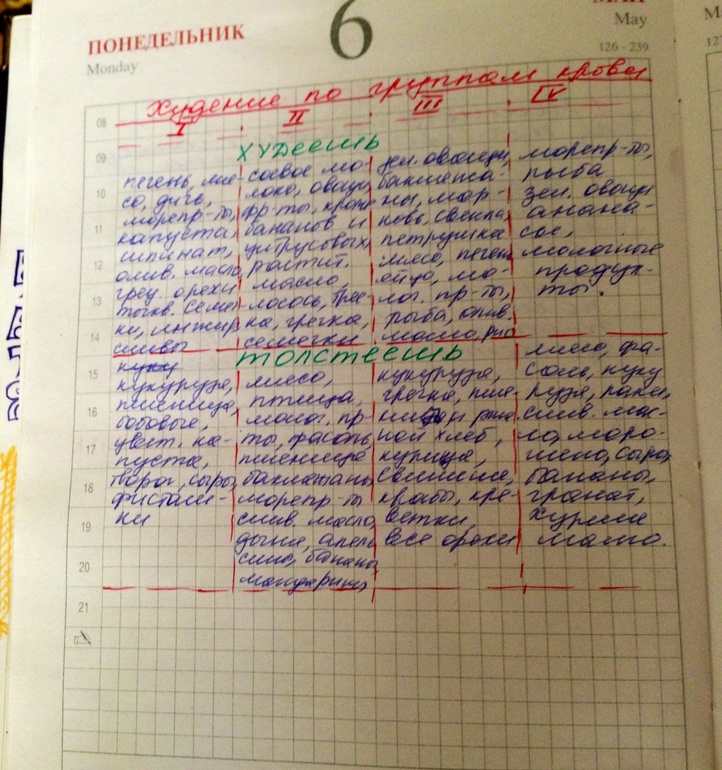 ПОНЕДЕЛЬНИК
Monday
6
МАЙ
May
126 - 239
Худение по группам крови
I II III IV
ХУДЕЕШЬ
печень, мя-
со, дичь,
морепр-ты,
капуста,
шпинат,
олив. масло
грец. орехи
тыкв. семе
ки, инжир
сливы
соевое мо-
локо, овощи,
фр-ты, кроме
бананов и
цитрусовых,
растит.
масло,
лосось, трес-
ка, гречка,
семечки
зел. овощи,
баклажа-
ны, мор-
ковь, свекла,
петрушка
мясо, печень
яйцо, мо-
лоч. пр-ты,
рыба, олив.
масло, рис
морепр-ты,
рыба
зел. овощи
анана-
сое,
молочные
продук-
ты.
ТОЛСТЕЕШЬ
куку
кукуруза,
пшеница
бобовые,
цвет. ка-
пуста,
творог, сыры,
фисташ-
ки
мясо,
птица,
молоч. пр-
ты, фасоль
пшеница
баклажаны
морепр-ты
слив. масло
дыня, апель
сины, бананы
мандарины
кукуруза,
гречка, пше-
ржа
ной хлеб,
курица,
свинина,
крабы, кре-
ветки,
все орехи
мясо, фа-
соль, куку
руза, раки,
слив. мас-
ло, моро-
женое, сыры,
бананы,
гранат,
хурма
манго.
08
09
10
11
12
13
14
15
16
17
18
19
20
21